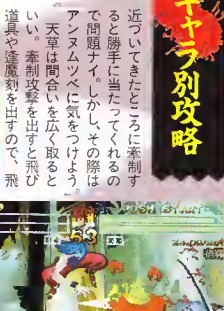 キャラ別攻略
近づいてきたところに牽制す
ると勝手に当たってくれるの
で問題ナイ。しかし、その際は
アンヌムツベに気をつけよう。
天草は間合いを広く取ると
いい。牽制攻撃を出すと飛び
道具や逢魔刻を出すので、飛